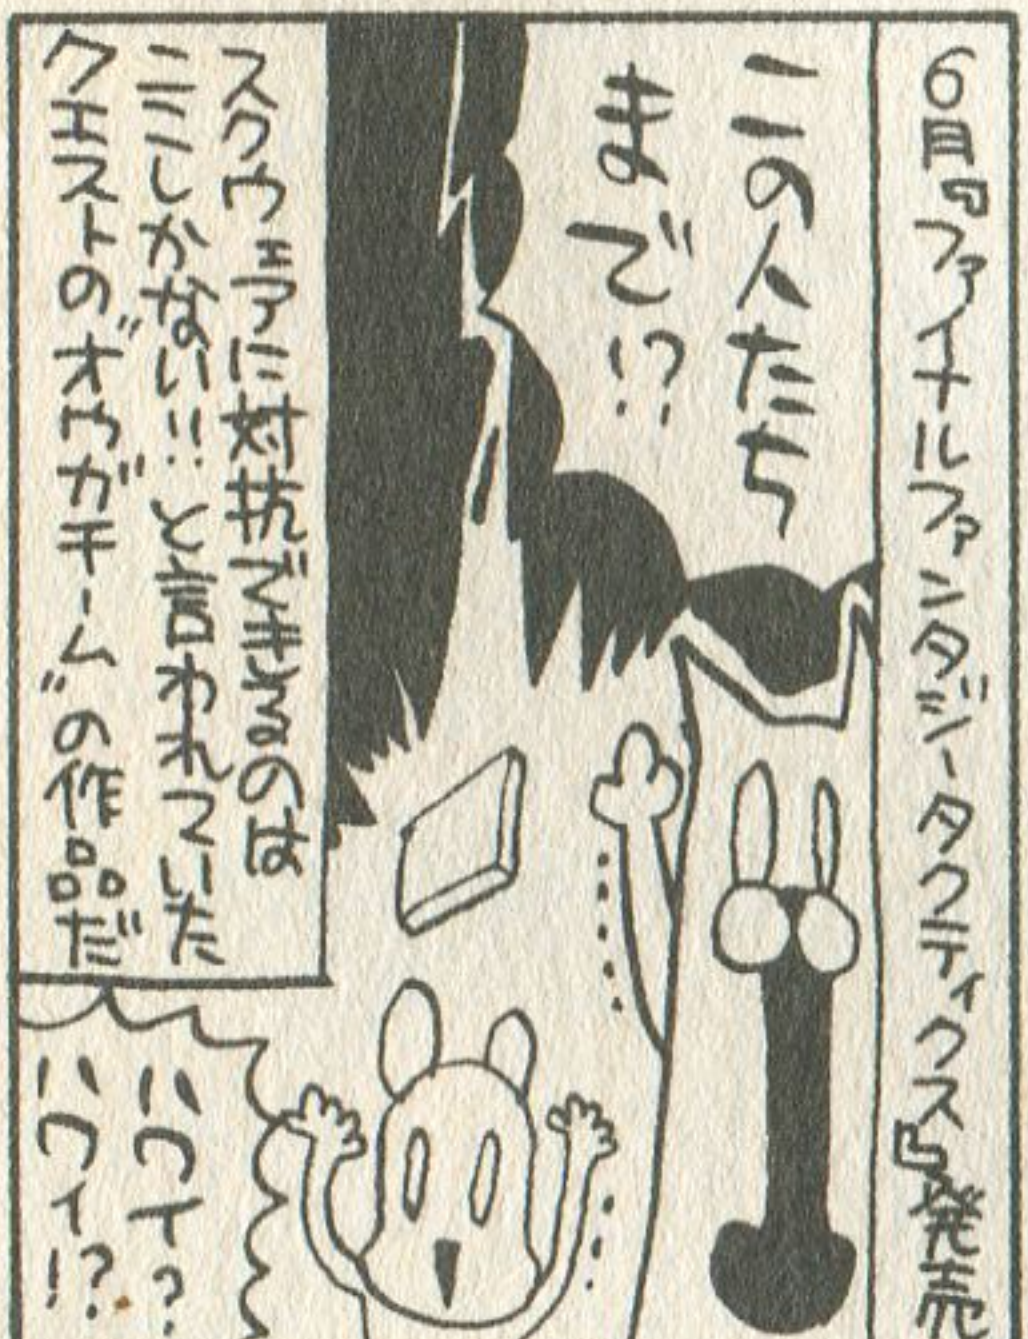 6月『ファイナルファンタジータクティクス』発売
この人たち
まで!?
スクウェアに対抗できるのは
ここしかない!!と言われていた
クエストの“オウガチーム”の作品だ
ハワイ?
ハワイ!?